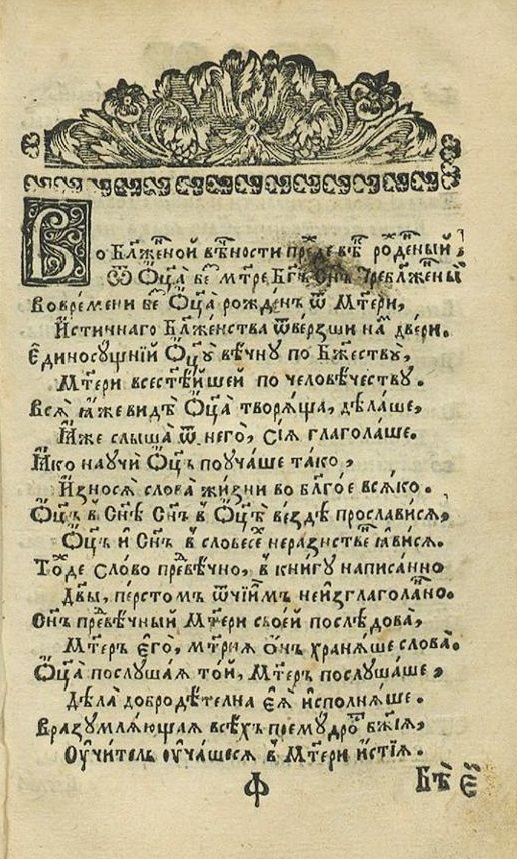 Во Бл҃же́ной вѣ́чности пре́жде вѣ̑ъ рожде́ный
Ѿ Ѻ҆ц҃а̀ бе М҃тре, Бг҃ъ Сн҃ъ Пребл҃же́ны̑й
Во вре́мени бе Ѻ҆ц҃а̀ рожде́нъ ѿ М҃тери,
И҆́стичнаго Бл҃же́нства ѿве́рзши на́м две́ри.
Е҆диносꙋ́щнїй Ѻ҆ц҃ꙋ̀ вѣ́чнꙋ по Бж҃ествꙋ̀,
М҃тери всест҃ѣ́йшей по человѣ́честву.
Всѧ̑ ꙗ҆́же ви́дѣ Ѻ҆ц҃а̀ творѧ́ща, дѣ́лаше,
Ꙗ҆́же слы́ша ѿ него̀, сїѧ̑ глаго́лаше.
Ꙗ҆́ко наꙋчѝ Ѻ҆ц҃ъ поꙋча́ше та́ко,
И҆зносѧ̀ слова̀ жи́зни во бл҃го́е всѧ́ко.
Ѻ҆ц҃ъ в Сн҃ѣ Сн҃ъ в Ѻ҆ц҃ѣ̀ вездѣ̀ просла́висѧ,
Ѻ҆ц҃ъ и҆ Сн҃ъ в словесѐ нера́знствѣ ꙗ҆ви́сѧ.
То́жде сло́во превѣ́чно, в кни́гꙋ напи́санно
Дв҃ы, пе́рстомъ ѻ҆́ч҃іимъ неи҆зглаго́лано.
Сн҃ъ превѣ́чный М҃тери свое́й послѣ́дова,
М҃теръ є҆гѡ̀, м҃трнѧ ѻ҆́нъ хранѧ́ше слова̀.
Ѻ҆ц҃а̀ послꙋ́шаѧ то́й, М҃терь послꙋ́шаше,
Дѣла̀ добродѣ́телна є҆ѧ̀ и҆сполнѧ́ше.
Вразꙋмлѧ́ющаѧ всѣ́хъ премꙋ́дрость бж҃їѧ,
Оу҆чи́тель оу҆ча́шесѧ в М҃тери и҆́стїѧ.
Ф
Бѣ̀ є҆